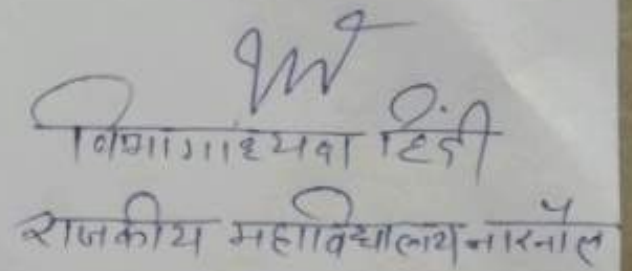 विभागाध्यक्ष हिंदी
राजकीय महाविद्यालय नारनौल